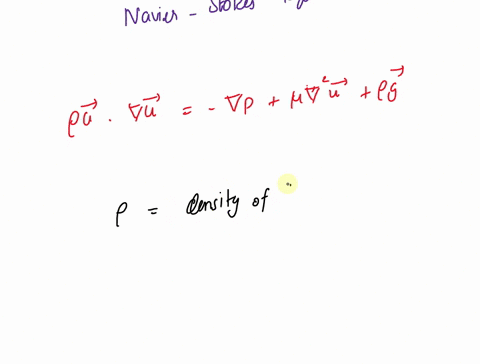 Navier - Stokes
ρu⃗ · ∇u⃗ = - ∇P + μ∇²u⃗ + ρg⃗
ρ = density of